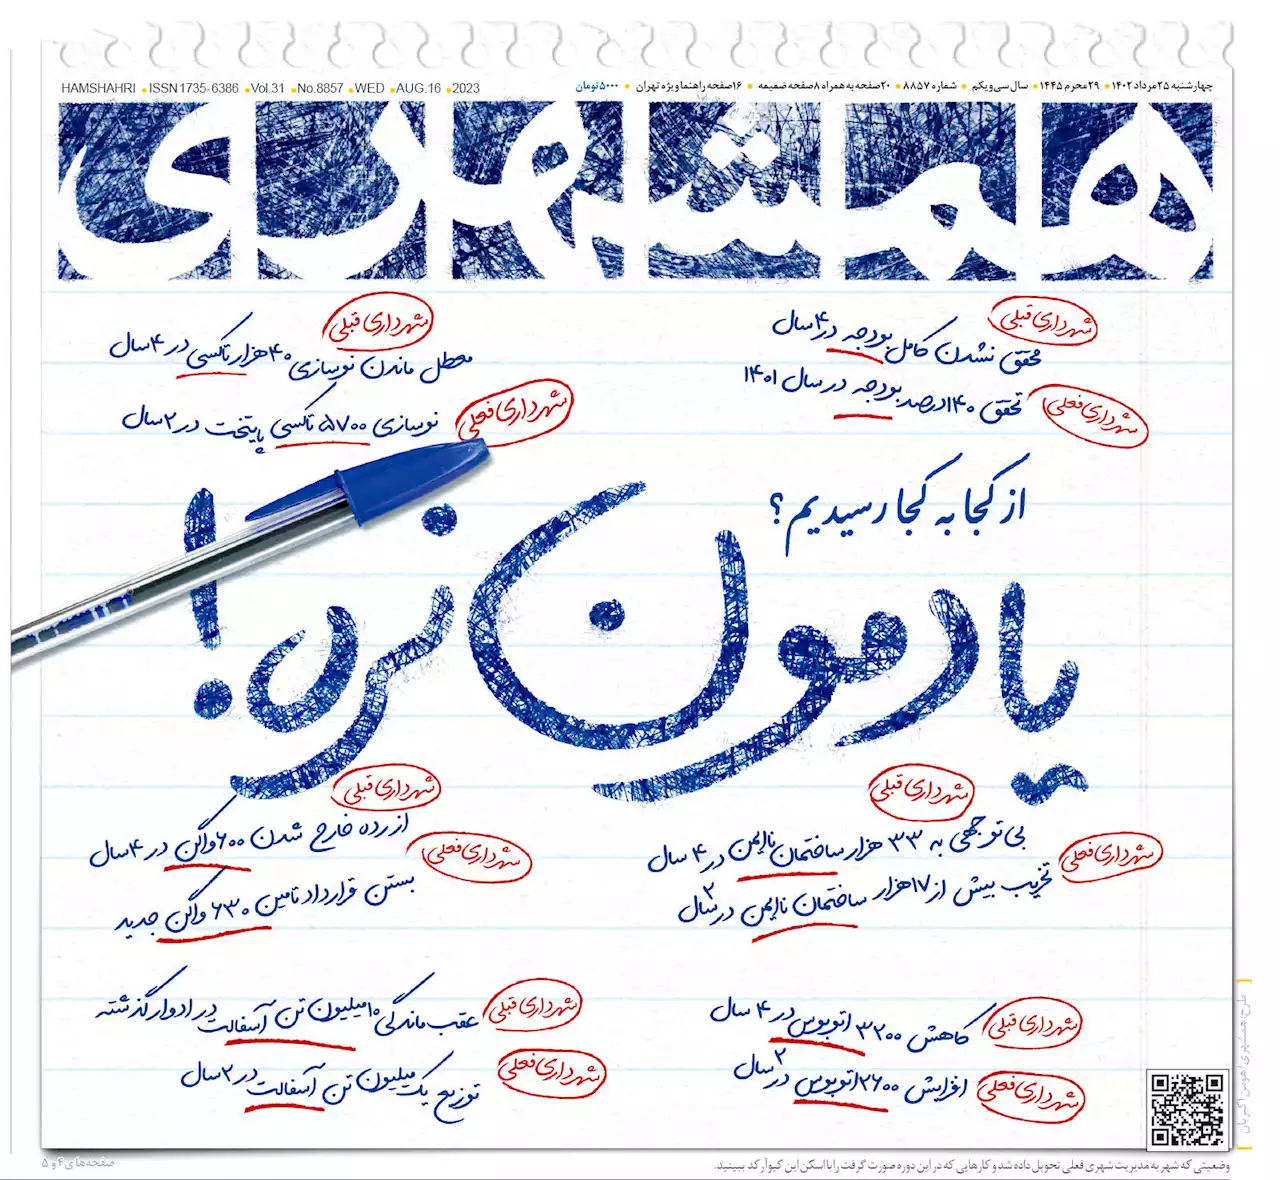 چهارشنبه ۲۵ مرداد ۱۴۰۲ • ۲۹ محرم ۱۴۴۵ • سال سی‌ویکم • شماره ۸۸۵۷ • ۲۰ صفحه به همراه ۸ صفحه ضمیمه • ۱۶ صفحه راهنما ویژه تهران • ۵۰۰۰ تومان
HAMSHAHRI • ISSN 1735-6386 • Vol.31 • No.8857 • WED • AUG.16 • 2023
همشهری
شهرداری قبلی
محقق نشدن کامل بودجه در ۴ سال
شهرداری فعلی
تحقق ۱۴۰ درصد بودجه در سال ۱۴۰۱
شهرداری قبلی
معطل ماندن نوسازی ۴۰ هزار تاکسی در ۴ سال
شهرداری فعلی
نوسازی ۵۷۰۰ تاکسی پایتخت در ۲ سال
از کجا به کجا رسیدیم؟
یادمون نره!
شهرداری قبلی
بی‌توجهی به ۳۳ هزار ساختمان ناایمن در ۴ سال
شهرداری فعلی
تخریب بیش از ۱۷ هزار ساختمان ناایمن در ۲ سال
شهرداری قبلی
از رده خارج شدن ۶۰۰ واگن در ۴ سال
شهرداری فعلی
بستن قرارداد تامین ۶۳۰ واگن جدید
شهرداری قبلی
کاهش ۳۲۰۰ اتوبوس در ۴ سال
شهرداری فعلی
افزایش ۲۶۰۰ اتوبوس در ۲ سال
شهرداری قبلی
عقب‌ماندگی ۱۰ میلیون تن آسفالت در ادوار گذشته
شهرداری فعلی
توزیع یک میلیون تن آسفالت در ۲ سال
طرح: همشهری
وضعیتی که شهر به مدیریت شهری فعلی تحویل داده شد و کارهایی که در این دوره صورت گرفت را با اسکن این کیوآر کد ببینید.
صفحه‌های ۴ و ۵